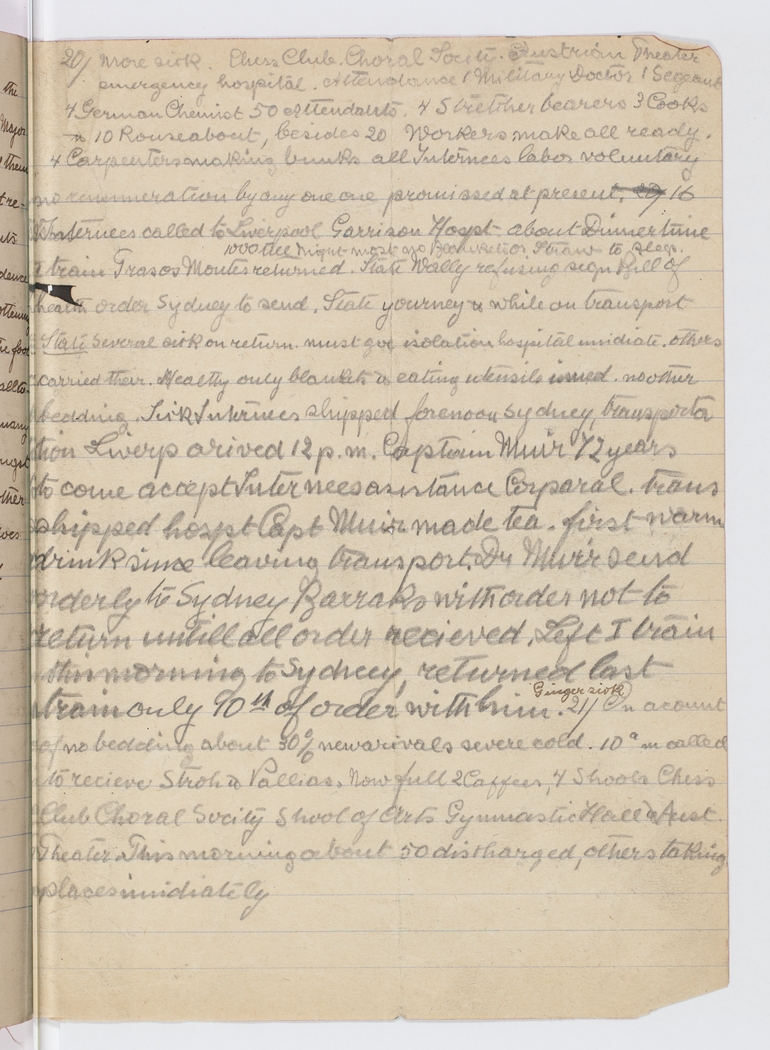 20/ more sick. Chess Club. Choral Socity. Austrian Theater
emergency hospital. Attendance 1 Military Doctor 1 Segeant
4 German Chemist 50 attendants. 4 Stretcher bearers 3 Cooks
& 10 Rouseabout, besides 20 Workers make all ready.
4 Carpenters making bunks all Internees labor voluntary
no renumeration by any one one promissed at present. 16
Internees called to Liverpool Garrison Hospt about Dinnertime
1000 Men night most no Blankets or Straw to sleep.
train Trasos Montes returned. State Wally refusing sign Bill of
health order Sydney to send. State yourney & while on transport
State several sick on return. must gve isolation hospital imidiate. others
carried their. Healthy only blankets & eating utensils issued. no other
bedding. Sick Internees shipped forenoon Sydney, transporta
tion Liverp arived 12 p.m. Captain Muir 72 years
to come accept Internees assistance Corparal. trans
shipped hospt Capt Muir made tea. first warm
drink since leaving transport. Dr Muir send
orderly to Sydney Barraks with order not to
return untill all order recieved. Left I train
this morning to Sydney, returned last
train only 90th of order with him. Ginger sick 21/ On acount
of no bedding about 30% new arivals severe cold. 10 a m called
to recieve Stroh & Pallias. Now full 2 Caffees, 4 Shools Chess
Club Choral Socity Shool of Arts Gymnastic Hall & Aust.
Theater. This morning about 50 discharged, others taking
places imidiately
the
Major
them
tre-
dence
many
other